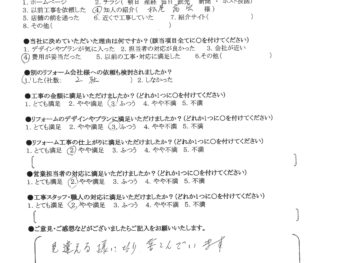 1. ホームページ 2. チラシ( 朝日 産経 毎日 読売 新聞・ポスト投函)
3. 以前工事を依頼した ④知人の紹介( 様)
5. 店舗の前を通った 6. 近くで工事していた 7. 紹介サイト( )
8. その他( )
●当社に決めていただいた理由は何ですか?(該当項目全てに○を付けてください)
1. デザインやプランが気に入った 2. 担当者の対応が良かった 3. 会社が近い
④費用が妥当だった 5. 以前の工事・対応に満足している 6. その他( )
●別のリフォーム会社様への依頼も検討されましたか?
①した(社数: 2社 ) 2. しなかった
●工事の金額に満足いただけましたか?(どれか1つに○を付けてください)
1. とても満足 2. やや満足 ③ふつう 4. やや不満 5. 不満
●リフォームのデザインやプランに満足いただけましたか?(どれか1つに○を付けてください)
1. とても満足 2. やや満足 ③ふつう 4. やや不満 5. 不満
●リフォーム工事の仕上がりに満足いただけましたか?(どれか1つに○を付けてください)
1. とても満足 ②やや満足 3. ふつう 4. やや不満 5. 不満
●営業担当者の対応に満足いただけましたか?(どれか1つに○を付けてください)
1. とても満足 ②やや満足 3. ふつう 4. やや不満 5. 不満
●工事スタッフ・職人の対応に満足いただけましたか?(どれか1つに○を付けてください)
1. とても満足 ②やや満足 3. ふつう 4. やや不満 5. 不満
●ご意見・ご感想などがございましたらご記入をお願いいたします。
見違える様になり喜んでいます